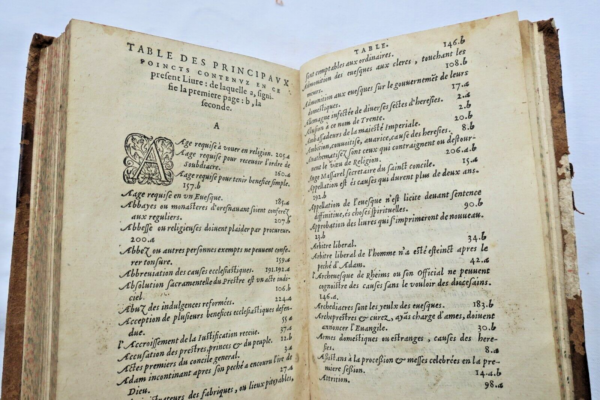 TABLE DES PRINCIPAVX
POINCTS CONTENVZ EN CE
present Liure: de laquelle a, signi-
fie la premiere page: b, la
seconde.
A
AAge requise a vouer en religion. 205.a
Age requise pour receuoir l'ordre de
soubdiacre. 160.a
Age requise pour tenir benefice simple.
157.b
Aage requise en vn Euesque. 185.a
Abbayes ou monasteres d'oresnauant soient conferez
aux reguliers. 207.b
Abbesse ou religieuses doiuent plaider par procureur.
200.a
Abbez ou autres personnes exempts ne peuuent confe-
rer tonsure. 159.a
Abbreuiation des causes ecclesiastiques. 191.192.a
Absolution Sacramentelle du Prestre est vn acte iudi-
ciel. 106.b
Abuz des indulgences reformées. 224.a
Acception de plusieurs benefices ecclesiastiques defen-
due. 57.a
l'Accroissement de la Iustification receue. 37.a
Accusation des prestres, princes & du peuple. 32.b
Actes premiers du concile general. 3.a
Adam incontinant apres son peché a encouru l'ire de
Dieu. 24.a
Administrateurs des fabriques, ou lieux pitoyables,
TABLE.
sont comptables aux ordinaires. 146.b
Admonition des euesques aux clercs, touchant les
meurs. 108.b
Admonition aux euesques sur le gouuernemẽt de leurs
domestiques. 17.a
Allemagne infectée de diuerses sectes d'heresies. 2.a
Allusion à ce nom de Trente. 2.a
Ambassadeurs de la maiesté Imperiale. 20.b
Ambition, conuoitise, auarice, cause des heresies. 8.b
Anathematisez sont ceux qui contraignent ou destour-
nent le vœu de Religion. 206.a.b
Ange Massarel secretaire du sainct concile. 15.a
Appellation est és causes qui durent plus de deux ans.
192.b
Appellation de l'euesque n'est licite deuant sentence
diffinitiue, és choses spirituelles. 90.b
Approbation des liures qui s'imprimeront de nouueau.
23.b
Arbitre liberal. 34.b
Arbitre liberal de l'homme n'a esté esteinct apres le
peché d'Adam. 42.a
Archeuesque de Rheims ou son Official ne peuuent
cognoistre des causes sans le vouloir des diocesains.
146.a
Archediacres sont les yeux des euesques. 183.b
Archeprestres & curez, ayãs charge d'ames, doiuent
annoncer l'Euangile. 30.b
Armes domestiques ou estranges, causes des here-
sies. 8.a
Assistans à la procession & messes celebrées en la pre-
miere session. 14.a.b
Attrition. 98.a